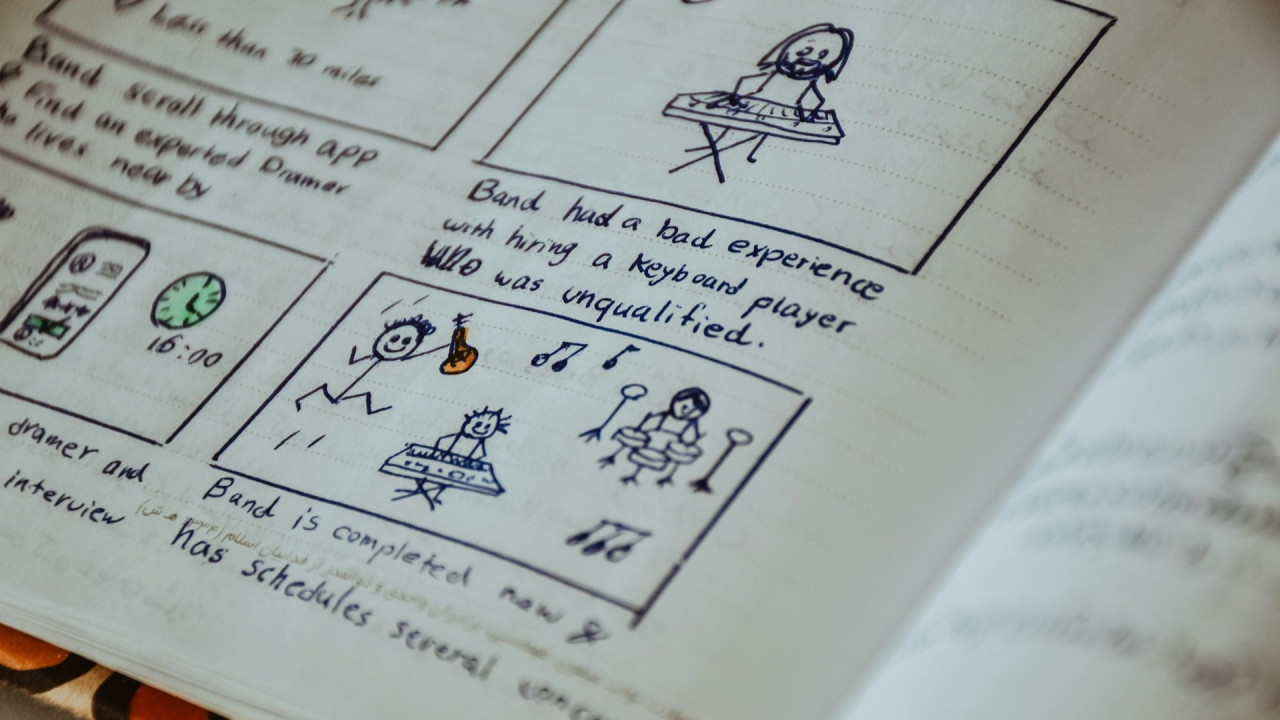 less than 30 miles
Band scroll through app
& Find an experted Dramer
lives near by
Band had a bad experience
with hiring a keyboard player
who was unqualified.
16:00
dramer and
interview
Band is completed now &
has schedules several conce